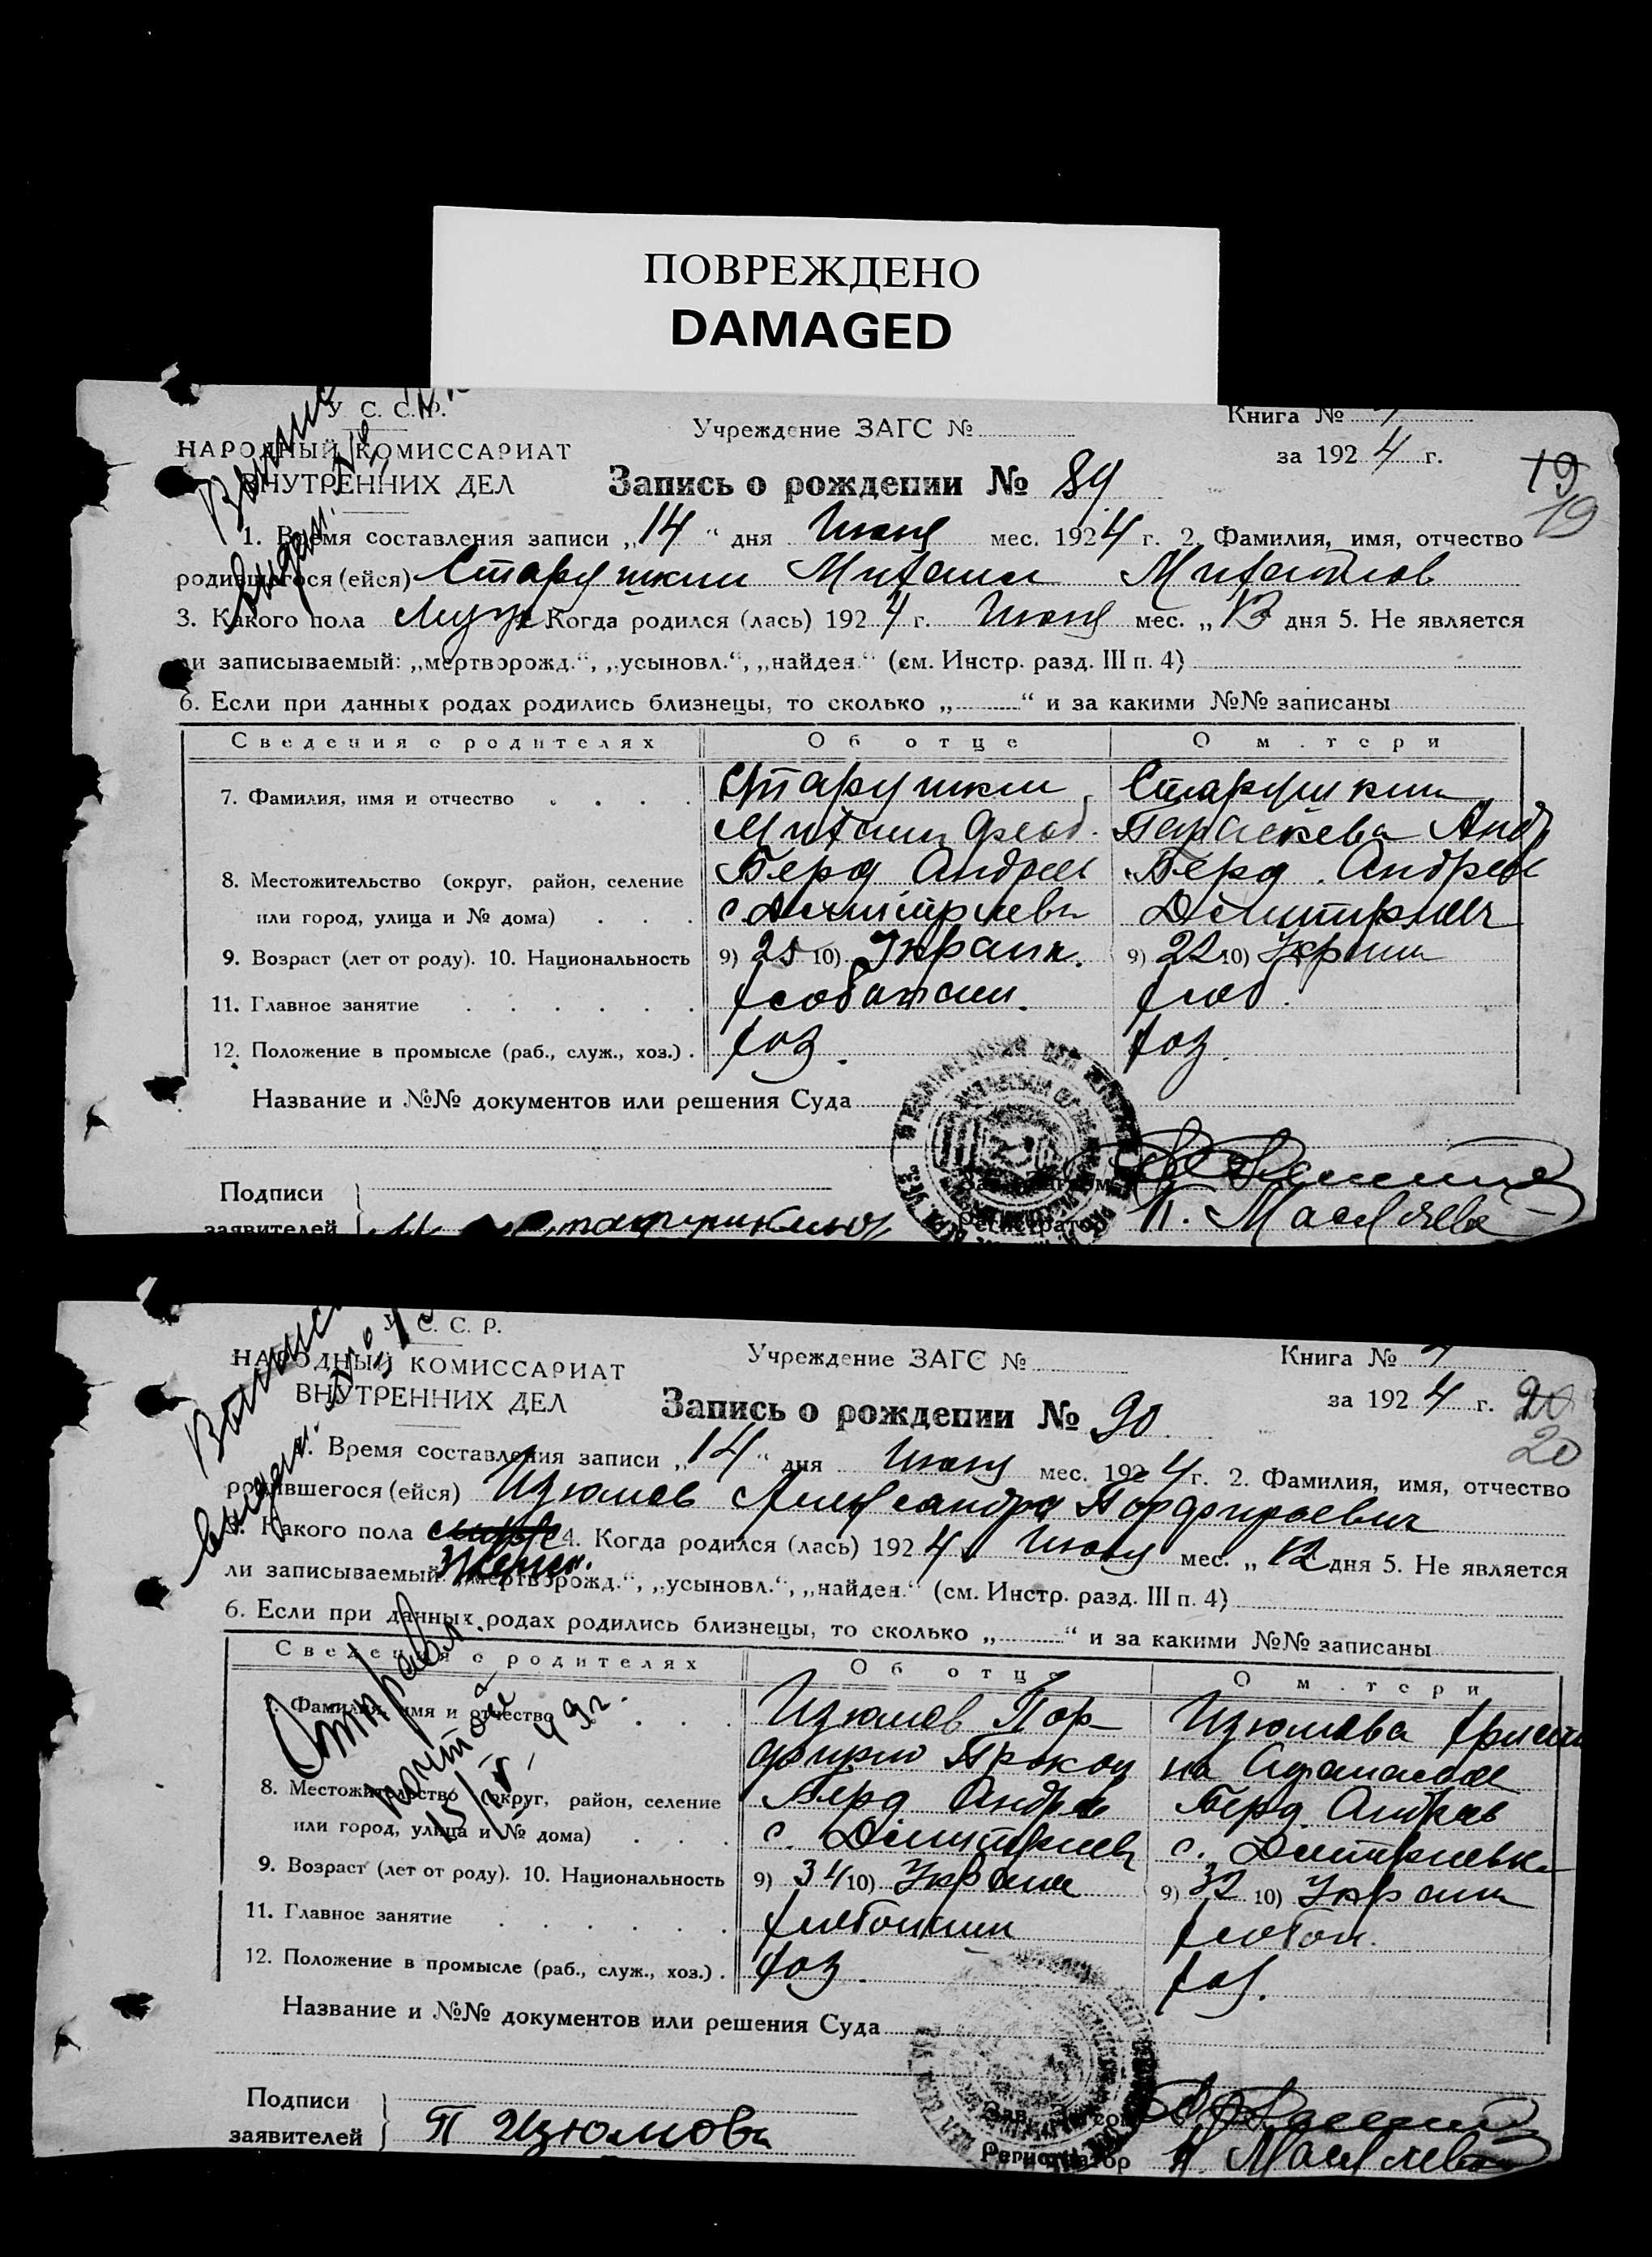 ПОВРЕЖДЕНО
DAMAGED
У. С. С. Р.
НАРОДНЫЙ КОМИССАРИАТ
ВНУТРЕННИХ ДЕЛ
Учреждение ЗАГС №
Книга №
за 1924 г.
19
19
Запись о рождении № 89
1. Время составления записи „14“ дня Июня мес. 1924 г. 2. Фамилия, имя, отчество
родившегося (ейся) Старушкин Михаил Михайлов
3. Какого пола Муж Когда родился (лась) 1924 г. Июня мес. „13 дня 5. Не является
ли записываемый: „мертворожд.“, „усыновл.“, „найден.“ (см. Инстр. разд. III п. 4)
6. Если при данных родах родились близнецы, то сколько „ “ и за какими №№ записаны
Сведения о родителях Об отце О матери
7. Фамилия, имя и отчество Старушкин Старушкин
Михаил Феод. Параскева Анд
8. Местожительство (округ, район, селение Берд Андреев Берд. Андреев
или город, улица и № дома) с. Дмитриевк Дмитриевк
9. Возраст (лет от роду). 10. Национальность 9) 25 10) Украин. 9) 22 10) Украин
11. Главное занятие хлебопашец. хлеб.
12. Положение в промысле (раб., служ., хоз.) хоз. хоз.
Название и №№ документов или решения Суда
Подписи
заявителей
Регистратор П. Маслечева
У. С. С. Р.
НАРОДНЫЙ КОМИССАРИАТ
ВНУТРЕННИХ ДЕЛ
Учреждение ЗАГС №
Книга №
за 1924 г.
20
20
Запись о рождении № 90
1. Время составления записи „14“ дня Июня мес. 1924 г. 2. Фамилия, имя, отчество
родившегося (ейся) Изюмов Александра Порфирьевич
3. Какого пола женск. 4. Когда родился (лась) 1924 Июня мес. „12 дня 5. Не является
ли записываемый: „мертворожд.“, „усыновл.“, „найден.“ (см. Инстр. разд. III п. 4)
6. Если при данных родах родились близнецы, то сколько „ “ и за какими №№ записаны
Отправл.
почтой
Сведения о родителях Об отце О матери
7. Фамилия, имя и отчество Изюмов Пор- Изюмова Христи
фирий Прокоп на Афанасьев
8. Местожительство (округ, район, селение Берд Андреев Берд. Андреев
или город, улица и № дома) с. Дмитриевк с. Дмитриевка
9. Возраст (лет от роду). 10. Национальность 9) 34 10) Украин 9) 32 10) Украин
11. Главное занятие хлебопашец хлебоп.
12. Положение в промысле (раб., служ., хоз.) хоз. хоз.
Название и №№ документов или решения Суда
Подписи
заявителей П Изюмова
Регистратор П. Маслечева